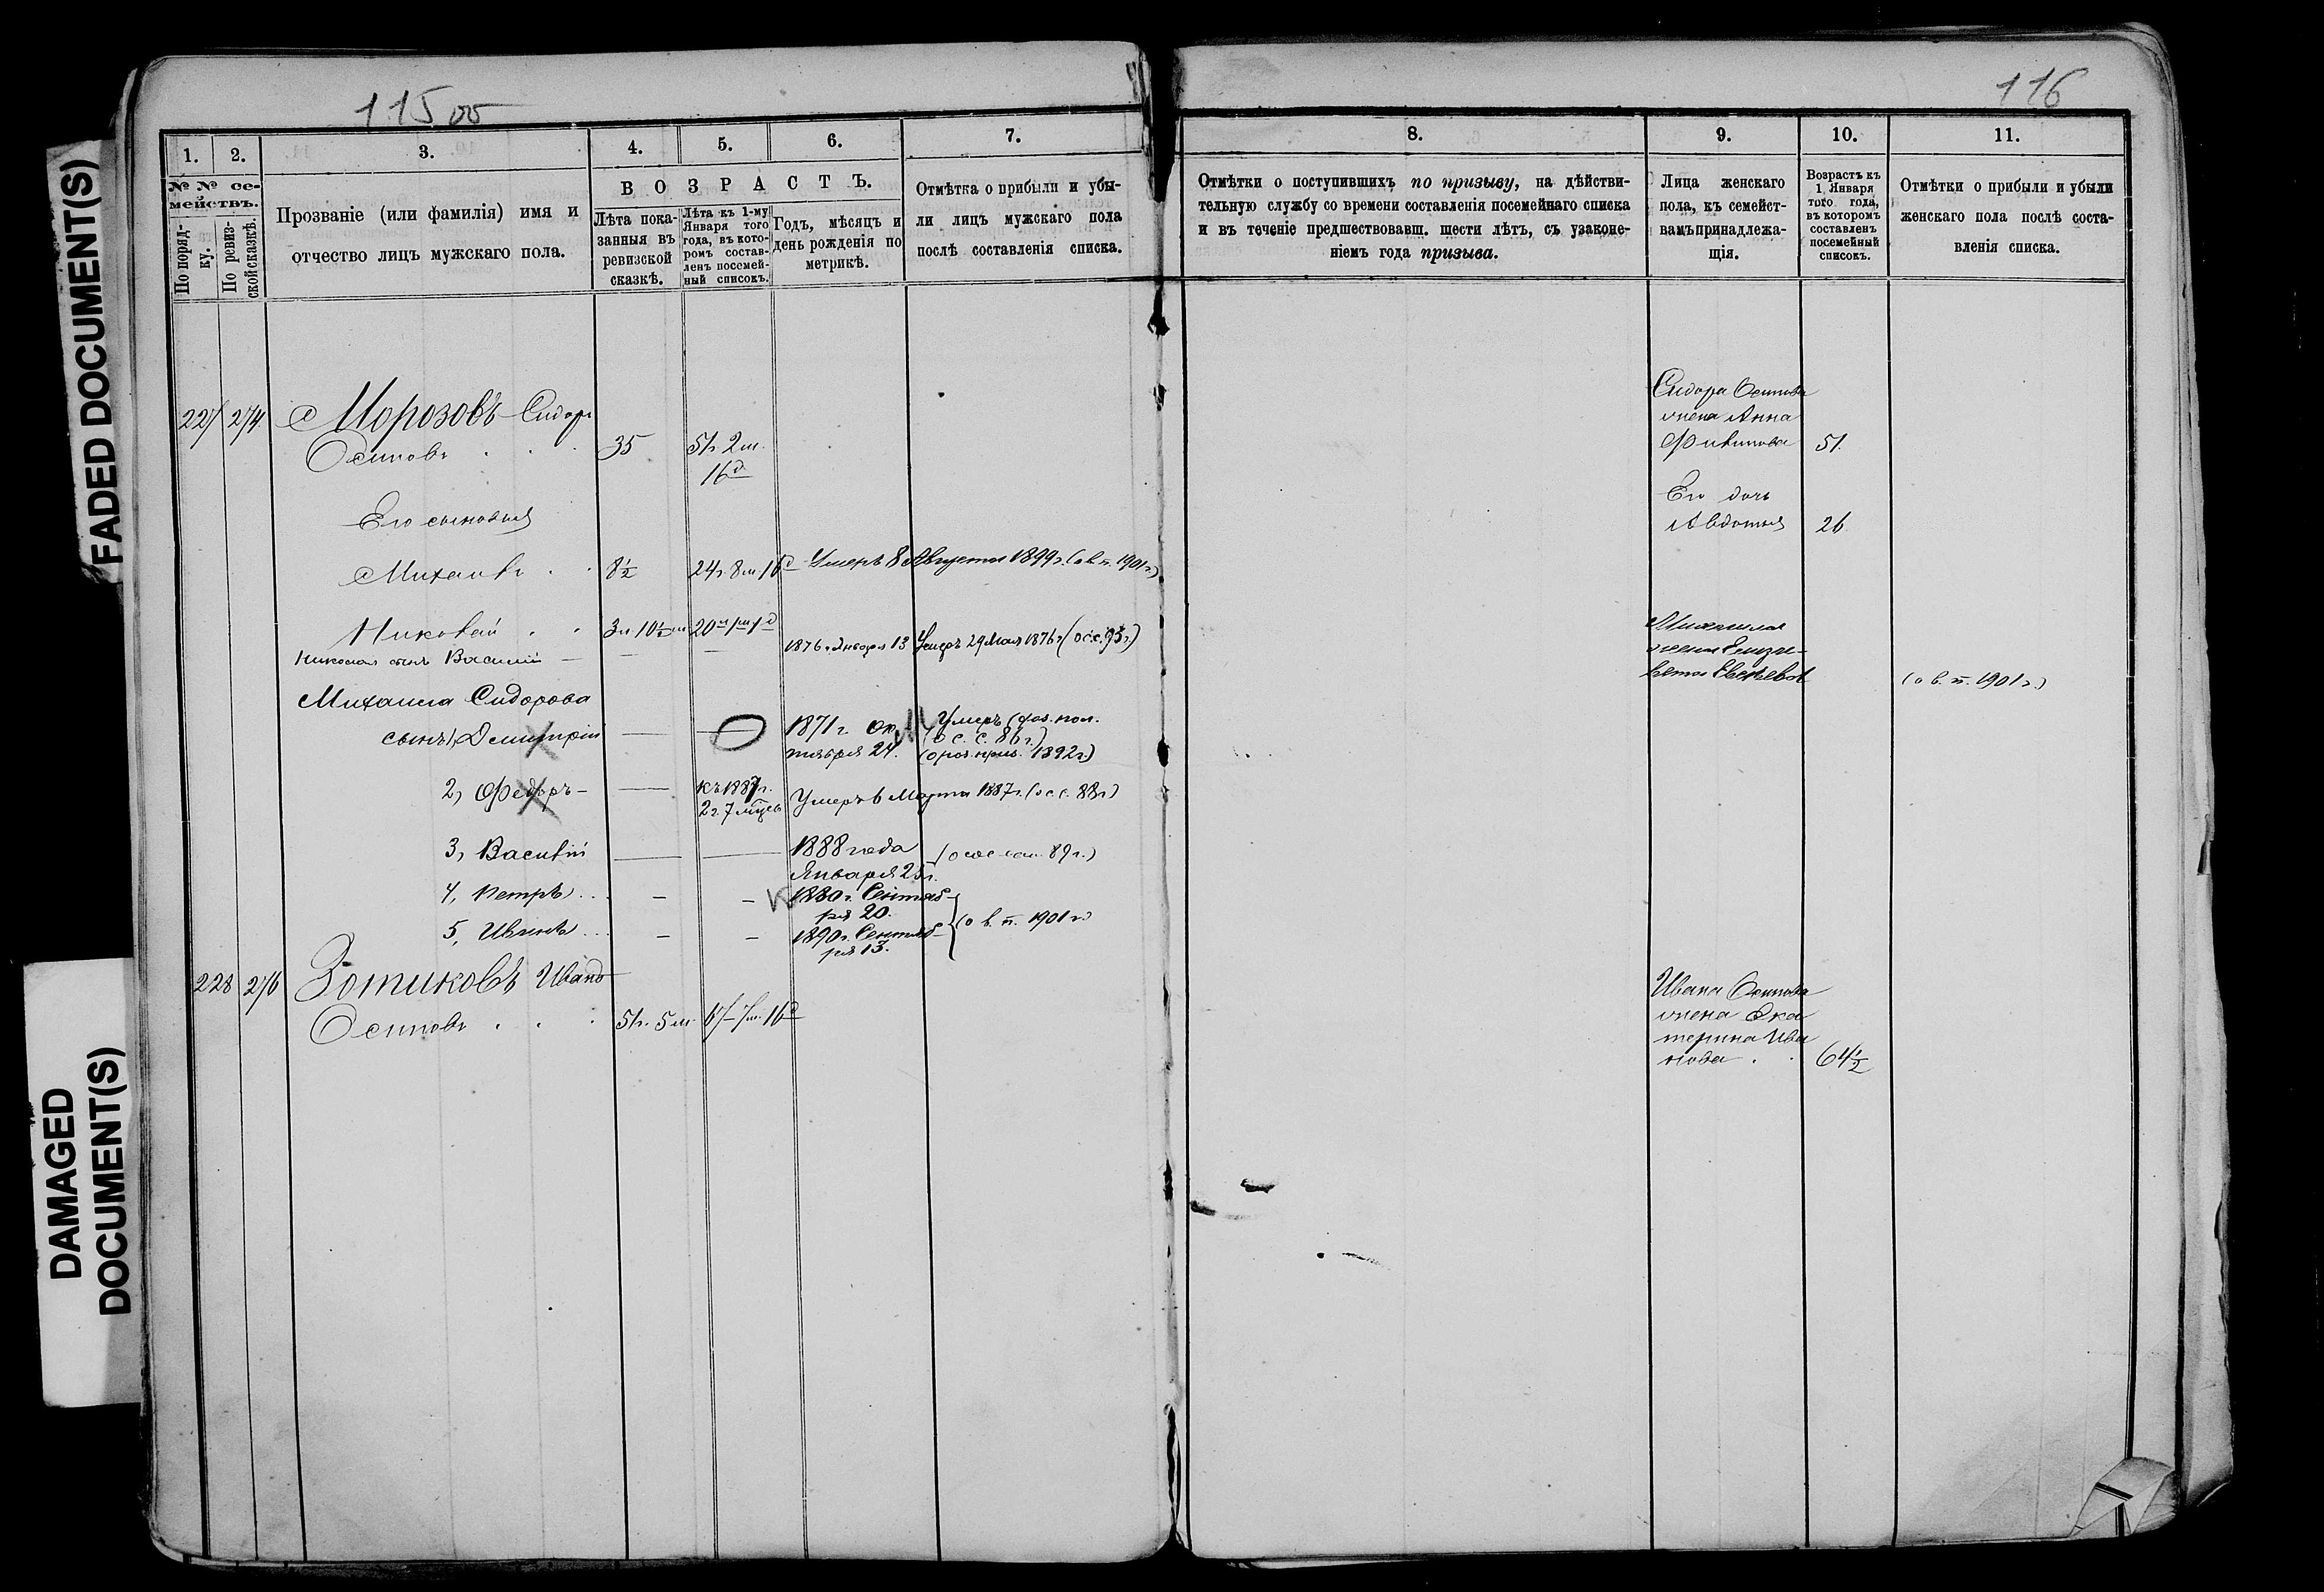 FADED DOCUMENT(S)
DAMAGED
DOCUMENT(S)
115 об
1.
2.
3.
4.
5.
6.
7.
№ № се-
мействъ.
По поряд-
ку.
По ревиз-
ской сказкѣ.
Прозваніе (или фамилія) имя и
отчество лицъ мужскаго пола.
ВОЗРАСТЪ.
Лѣта пока-
занныя въ
ревизской
сказкѣ.
Лѣта къ 1-му
Января того
года, въ кото-
ромъ состав-
ленъ посемей-
ный списокъ.
Годъ, мѣсяцъ и
день рожденія по
метрикѣ.
Отмѣтка о прибыли и убы-
ли лицъ мужскаго пола
послѣ составленія списка.
227 274 Морозовъ Сидоръ
Осиповъ 35 51г. 2м.
16д
Его сыновья
Михаилъ 8½ 24г. 8м. 16д Умеръ 8 Августа 1899г. (о в. п. 1901г.)
Николай 3г. 10½м.
Николая сынъ Василій — — — 1876г. Января 13 Умеръ 29 Мая 1876г. (о с.с. 95г.)
Михаила Сидорова
сынъ 1, Дмитрій — — 1871г. Ок-
тября 24. Умеръ
(о с. с. 86г.)
1892г.)
2, Федоръ — — къ 1887г.
2г. 7 мѣся Умеръ въ Марта 1887г. (о с.с. 88г.)
3, Василій — — 1888 года
Января 23г. 89г.)
4, Петръ — — 1880г. Сентяб-
ря 20.
5, Иванъ — — 1890г. Сентяб-
ря 13. (о в. п. 1901г.)
228 276 Зотиковъ Иванъ
Осиповъ 51г. 5м. 67 7м. 16д
116
8.
9.
10.
11.
Отмѣтки о поступившихъ по призыву, на дѣйстви-
тельную службу со времени составленія посемейнаго списка
и въ теченіе предшествовавш. шести лѣтъ, съ узаконе-
ніемъ года призыва.
Лица женскаго
пола, къ семейст-
вамъ принадлежа-
щія.
Возрастъ къ
1 Января
того года,
въ которомъ
составленъ
посемейный
списокъ.
Отмѣтки о прибыли и убыли
женскаго пола послѣ соста-
вленія списка.
Сидора Осипова
жена Анна
Филипова 51.
Его дочь
Авдотья 26
Михаила
жена Елиза-
вета (о в. п. 1901г.)
Ивана Осипова
жена Ека
терина Ива
нова 64½